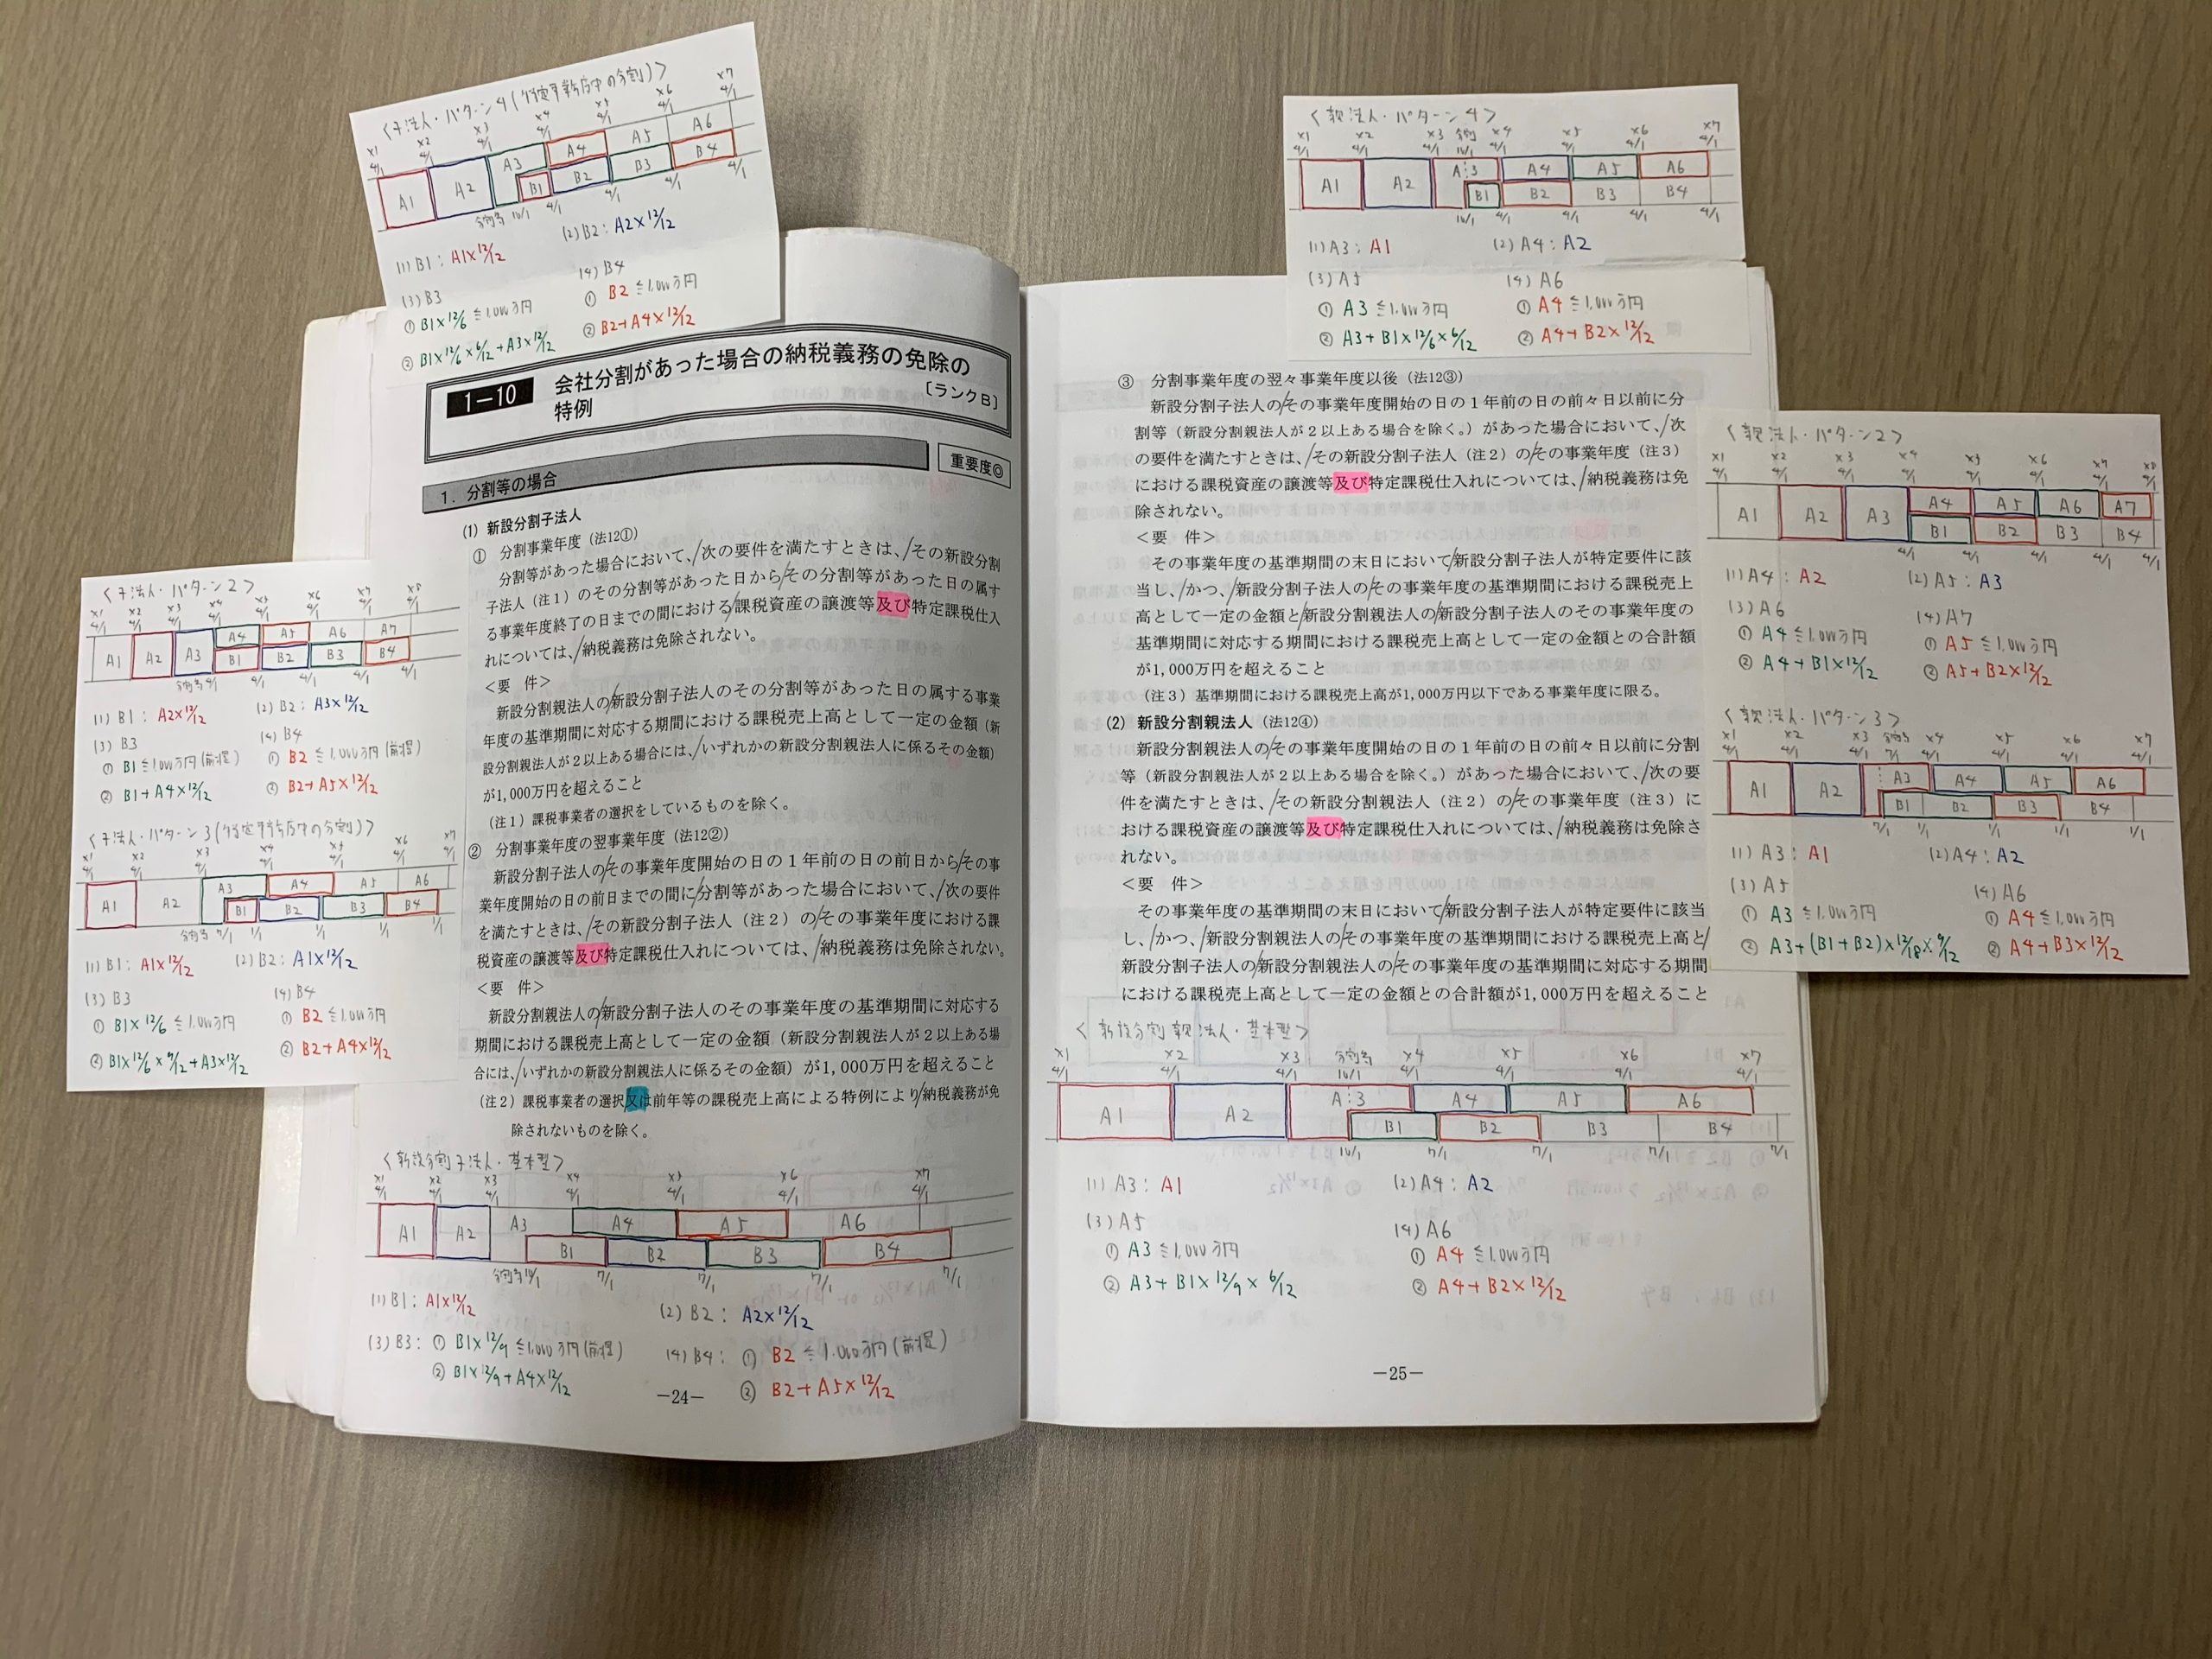 <子法人・パターン4(特定事新店中の分割)>
x1 x2 x3 x4 x5 x6 x7
4/1 4/1 4/1 4/1 4/1 4/1 4/1
A1 A2 A3 A4 A5 A6
B1 B2 B3 B4
分割等 10/1 4/1 4/1 4/1 4/1
(1) B1: A1×12/12 (2) B2: A2×12/12
(3) B3
① B1×12/6 ≦1,000万円
② B1×12/6×6/12+A3×12/12
(4) B4
① B2 ≦1,000万円
② B2+A4×12/12
1-10 会社分割があった場合の納税義務の免除の
特例 〔ランクB〕
1.分割等の場合 重要度◎
(1) 新設分割子法人
① 分割事業年度(法12①)
分割等があった場合において、/次の要件を満たすときは、/その新設分割
子法人(注1)のその分割等があった日から/その分割等があった日の属す
る事業年度終了の日までの間における/課税資産の譲渡等及び特定課税仕入
れについては、/納税義務は免除されない。
<要 件>
新設分割親法人の/新設分割子法人のその分割等があった日の属する事業
年度の基準期間に対応する期間における課税売上高として一定の金額(新
設分割親法人が2以上ある場合には、/いずれかの新設分割親法人に係るその金額)
が1,000万円を超えること
(注1)課税事業者の選択をしているものを除く。
② 分割事業年度の翌事業年度(法12②)
新設分割子法人の/その事業年度開始の日の1年前の日の前日から/その事
業年度開始の日の前日までの間に/分割等があった場合において、/次の要件
を満たすときは、/その新設分割子法人(注2)の/その事業年度における課
税資産の譲渡等及び特定課税仕入れについては、/納税義務は免除されない。
<要 件>
新設分割親法人の/新設分割子法人のその事業年度の基準期間に対応する
期間における課税売上高として一定の金額(新設分割親法人が2以上ある場
合には、/いずれかの新設分割親法人に係るその金額)が1,000万円を超えること
(注2)課税事業者の選択又は前年等の課税売上高による特例により/納税義務が免
除されないものを除く。
<新設分割子法人・基本型>
x1 x2 x3 x4 x5 x6 x7
4/1 4/1 4/1 4/1 4/1 4/1 4/1
A1 A2 A3 A4 A5 A6
B1 B2 B3 B4
分割等10/1 7/1 7/1 7/1 7/1
(1) B1: A1×12/12 (2) B2: A2×12/12
(3) B3: ① B1×12/9 ≦1,000万円(前提)
② B1×12/9+A4×12/12
(4) B4: ① B2 ≦1,000万円(前提)
② B2+A5×12/12
-24-
<子法人・パターン2>
x1 x2 x3 x4 x5 x6 x7 x8
4/1 4/1 4/1 4/1 4/1 4/1 4/1 4/1
A1 A2 A3 A4 A5 A6 A7
B1 B2 B3 B4
分割等4/1 4/1 4/1 4/1 4/1
(1) B1: A2×12/12 (2) B2: A3×12/12
(3) B3
① B1≦1,000万円(前提)
② B1+A4×12/12
(4) B4
① B2≦1,000万円(前提)
② B2+A5×12/12
x1 x2 x3 x4 x5 x6 x7
4/1 4/1 4/1 4/1 4/1 4/1 4/1
A1 A2 A3 A4 A5 A6
B1 B2 B3 B4
分割等 7/1 1/1 1/1 1/1 1/1
(1) B1: A1×12/12 (2) B2: A1×12/12
(3) B3
① B1×12/6 ≦1,000万円
② B1×12/6×9/12+A3×12/12
(4) B4
① B2 ≦1,000万円
② B2+A4×12/12
<親法人・パターン4>
x1 x2 x3 分割 x4 x5 x6 x7
4/1 4/1 4/1 10/1 4/1 4/1 4/1 4/1
A1 A2 A3 A4 A5 A6
B1 B2 B3 B4
10/1 4/1 4/1 4/1 4/1
(1) A3: A1 (2) A4: A2
(3) A5
① A3 ≦1,000万円
② A3+B1×12/6×6/12
(4) A6
① A4 ≦1,000万円
② A4+B2×12/12
③ 分割事業年度の翌々事業年度以後(法12③)
新設分割子法人の/その事業年度開始の日の1年前の日の前々日以前に分
割等(新設分割親法人が2以上ある場合を除く。)があった場合において、/次
の要件を満たすときは、/その新設分割子法人(注2)の/その事業年度(注3)
における課税資産の譲渡等及び特定課税仕入れについては、/納税義務は免
除されない。
<要 件>
その事業年度の基準期間の末日において/新設分割子法人が特定要件に該
当し、/かつ、/新設分割子法人の/その事業年度の基準期間における課税売上
高として一定の金額と/新設分割親法人の/新設分割子法人のその事業年度の
基準期間に対応する期間における課税売上高として一定の金額との合計額
が1,000万円を超えること
(注3)基準期間における課税売上高が1,000万円以下である事業年度に限る。
(2) 新設分割親法人(法12④)
新設分割親法人の/その事業年度開始の日の1年前の日の前々日以前に分割
等(新設分割親法人が2以上ある場合を除く。)があった場合において、/次の要
件を満たすときは、/その新設分割親法人(注2)の/その事業年度(注3)に
おける課税資産の譲渡等及び特定課税仕入れについては、/納税義務は免除さ
れない。
<要 件>
その事業年度の基準期間の末日において/新設分割子法人が特定要件に該当
し、/かつ、/新設分割親法人の/その事業年度の基準期間における課税売上高と/
新設分割子法人の/新設分割親法人の/その事業年度の基準期間に対応する期間
における課税売上高として一定の金額との合計額が1,000万円を超えること
<新設分割親法人・基本型>
x1 x2 x3 分割等 x4 x5 x6 x7
4/1 4/1 4/1 10/1 4/1 4/1 4/1 4/1
A1 A2 A3 A4 A5 A6
B1 B2 B3 B4
10/1 7/1 7/1 7/1 7/1
(1) A3: A1 (2) A4: A2
(3) A5
① A3 ≦1,000万円
② A3+B1×12/9×6/12
(4) A6
① A4 ≦1,000万円
② A4+B2×12/12
-25-
<親法人・パターン2>
x1 x2 x3 x4 x5 x6 x7 x8
4/1 4/1 4/1 4/1 4/1 4/1 4/1 4/1
A1 A2 A3 A4 A5 A6 A7
B1 B2 B3 B4
4/1 4/1 4/1 4/1 4/1
(1) A4: A2 (2) A5: A3
(3) A6
① A4≦1,000万円
② A4+B1×12/12
(4) A7
① A5 ≦1,000万円
② A5+B2×12/12
<親法人・パターン3>
x1 x2 x3 分割等 x4 x5 x6 x7
4/1 4/1 4/1 7/1 4/1 4/1 4/1 4/1
A1 A2 A3 A4 A5 A6
B1 B2 B3 B4
7/1 1/1 1/1 1/1 1/1
(1) A3: A1 (2) A4: A2
(3) A5
① A3 ≦1,000万円
② A3+(B1+B2)×12/18×9/12
(4) A6
① A4≦1,000万円
② A4+B3×12/12